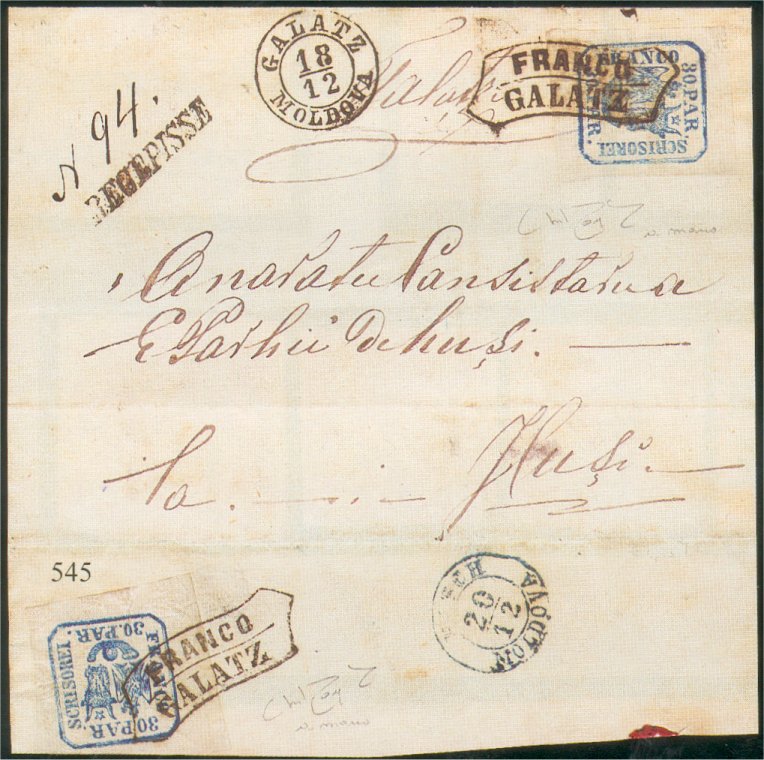 GALATZ
18
12
MOLDOVA
FRANCO
GALATZ
FRANCO
30 PAR.
SCRISOREI
PAR.
N 94.
RECEPISSE
Onaratu Consistariu a
Eparhii de huşi.
la. Huşi.
545
20
12
MOLDOVA
SCRISOREI.
30.PAR.
30 PAR
FRANCO
GALATZ